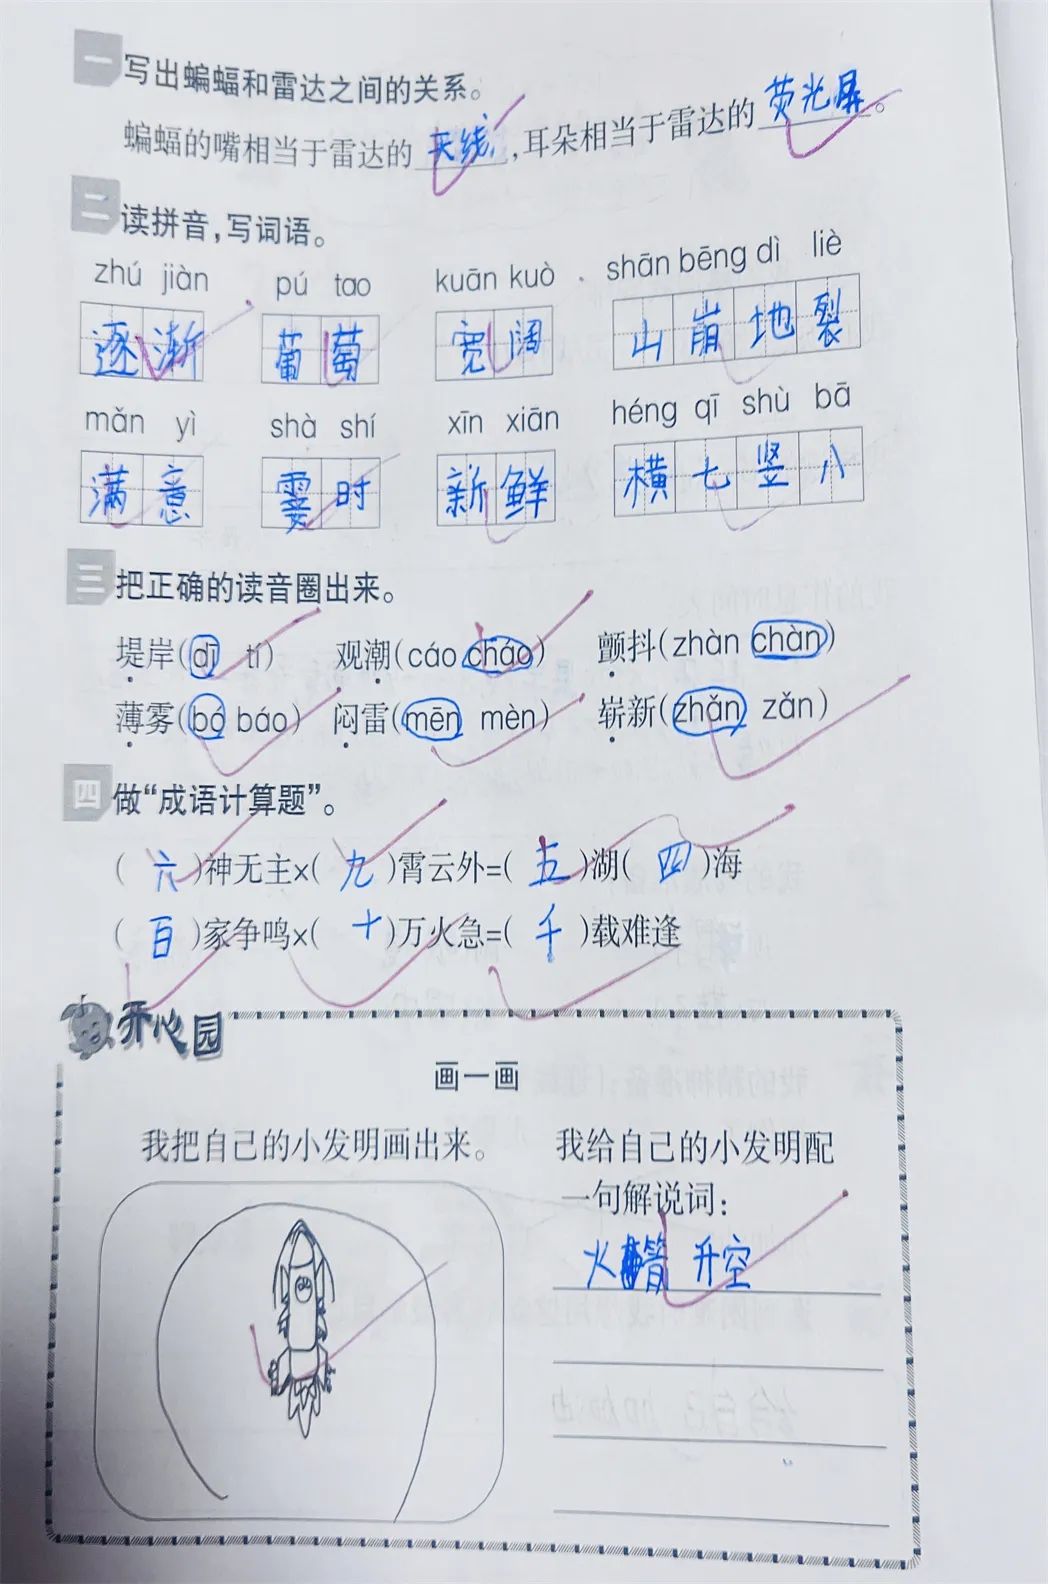 一 写出蝙蝠和雷达之间的关系。
蝙蝠的嘴相当于雷达的天线,耳朵相当于雷达的荧光屏。
二 读拼音,写词语。
zhú jiàn pú tao kuān kuò shān bēng dì liè
逐渐 葡萄 宽阔 山崩地裂
mǎn yì shà shí xīn xiān héng qī shù bā
满意 霎时 新鲜 横七竖八
三 把正确的读音圈出来。
堤岸(dī tí) 观潮(cáo cháo) 颤抖(zhàn chàn)
薄雾(bó báo) 闷雷(mēn mèn) 崭新(zhǎn zǎn)
四 做“成语计算题”。
(六)神无主×(九)霄云外=(五)湖(四)海
(百)家争鸣×(十)万火急=(千)载难逢
开心园
画一画
我把自己的小发明画出来。
我给自己的小发明配
一句解说词:
火箭 升空